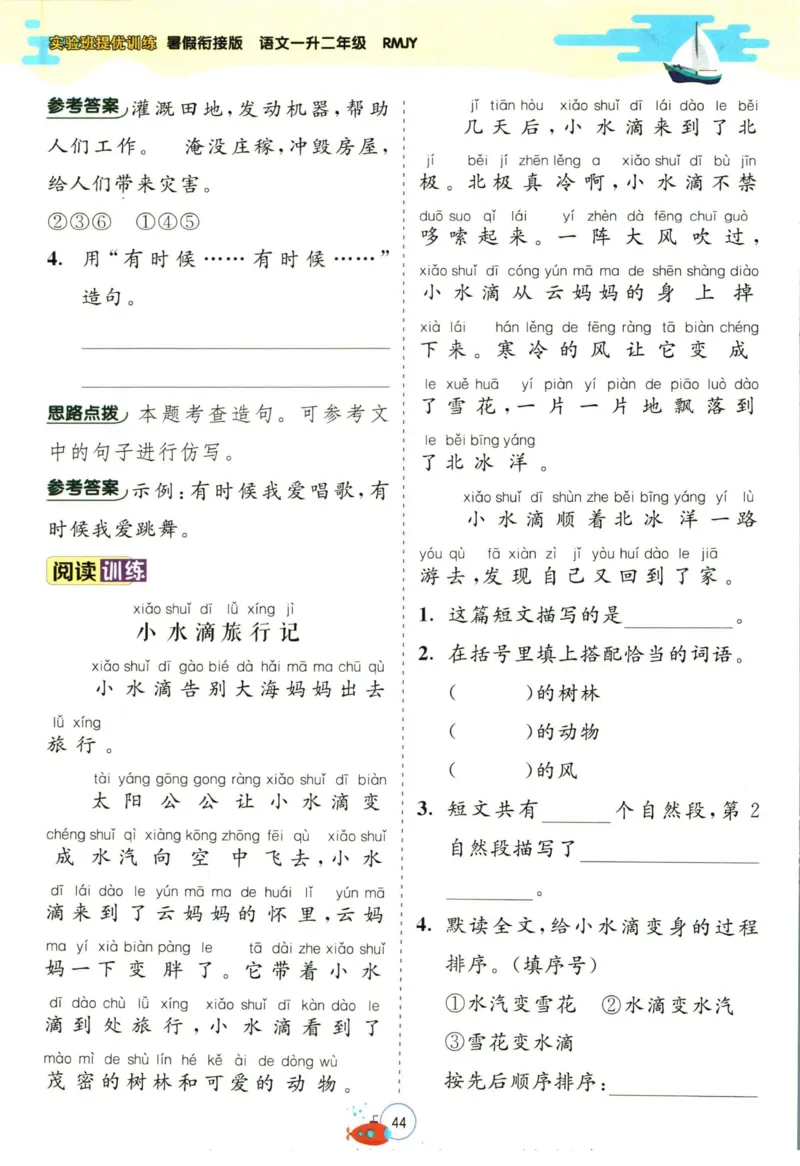 实验班提优训练 暑假衔接版 语文一升二年级 RMJY
参考答案 灌溉田地,发动机器,帮助
人们工作。 淹没庄稼,冲毁房屋,
给人们带来灾害。
②③⑥ ①④⑤
4. 用“有时候……有时候……”
造句。
思路点拨 本题考查造句。可参考文
中的句子进行仿写。
参考答案 示例:有时候我爱唱歌,有
时候我爱跳舞。
阅读训练
xiǎo shuǐ dī lǚ xíng jì
小水滴旅行记
xiǎo shuǐ dī gào bié dà hǎi mā ma chū qù
小水滴告别大海妈妈出去
lǚ xíng
旅行。
tài yáng gōng gong ràng xiǎo shuǐ dī biàn
太阳公公让小水滴变
chéng shuǐ qì xiàng kōng zhōng fēi qù xiǎo shuǐ
成水汽向空中飞去,小水
dī lái dào le yún mā ma de huái lǐ yún mā
滴来到了云妈妈的怀里,云妈
ma yí xià biàn pàng le tā dài zhe xiǎo shuǐ
妈一下变胖了。它带着小水
dī dào chù lǚ xíng xiǎo shuǐ dī kàn dào le
滴到处旅行,小水滴看到了
mào mì de shù lín hé kě ài de dòng wù
茂密的树林和可爱的动物。
jǐ tiān hòu xiǎo shuǐ dī lái dào le běi
几天后,小水滴来到了北
jí běi jí zhēn lěng a xiǎo shuǐ dī bù jīn
极。北极真冷啊,小水滴不禁
duō suo qǐ lái yí zhèn dà fēng chuī guò
哆嗦起来。一阵大风吹过,
xiǎo shuǐ dī cóng yún mā ma de shēn shàng diào
小水滴从云妈妈的身上掉
xià lái hán lěng de fēng ràng tā biàn chéng
下来。寒冷的风让它变成
le xuě huā yí piàn yí piàn de piāo luò dào
了雪花,一片一片地飘落到
le běi bīng yáng
了北冰洋。
xiǎo shuǐ dī shùn zhe běi bīng yáng yí lù
小水滴顺着北冰洋一路
yóu qù fā xiàn zì jǐ yòu huí dào le jiā
游去,发现自己又回到了家。
1. 这篇短文描写的是。
2. 在括号里填上搭配恰当的词语。
( )的树林
( )的动物
( )的风
3. 短文共有 个自然段,第2
自然段描写了
。
4. 默读全文,给小水滴变身的过程
排序。(填序号)
①水汽变雪花 ②水滴变水汽
③雪花变水滴
按先后顺序排序:
44